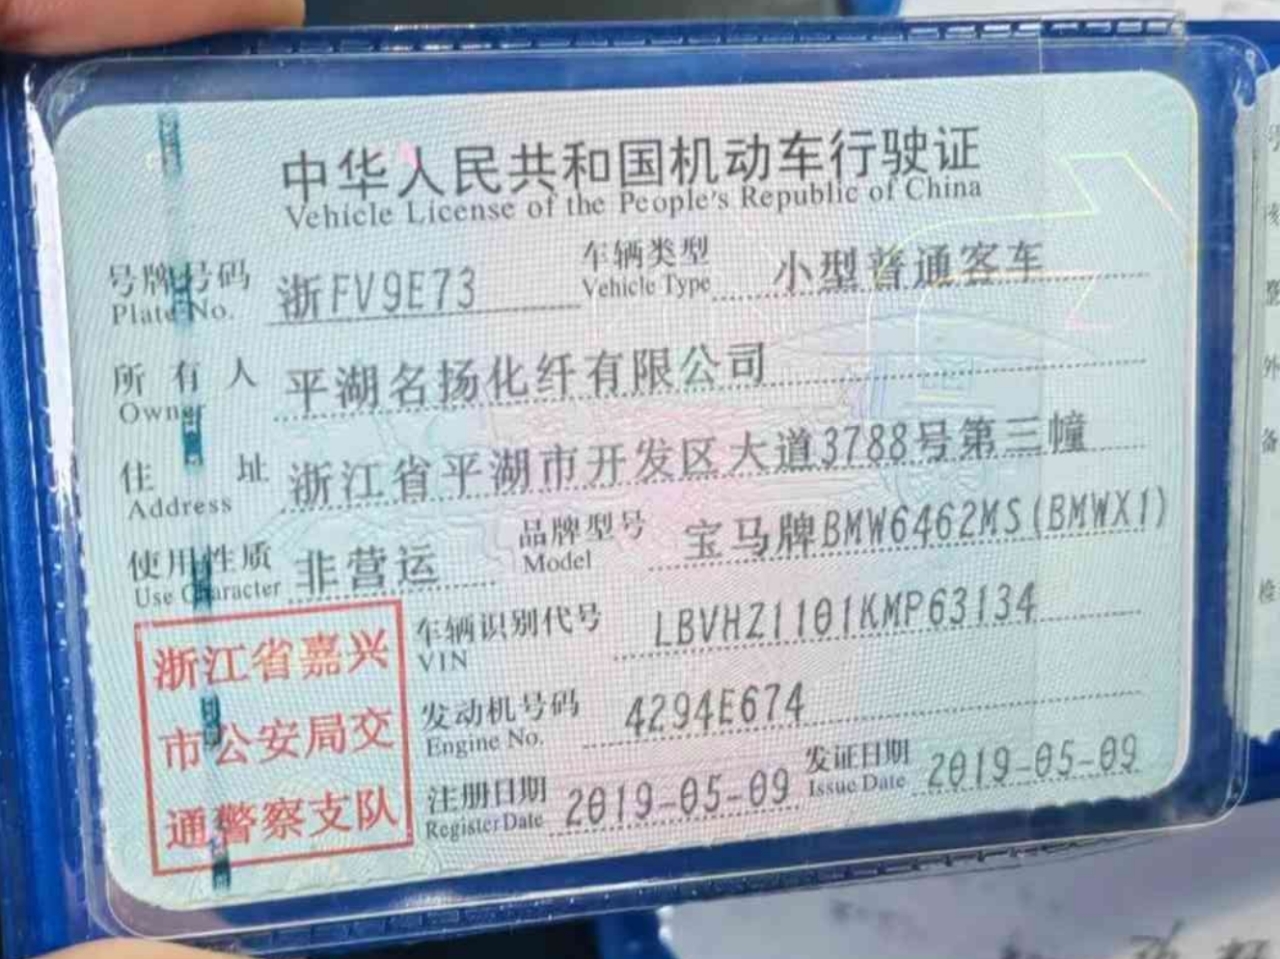 中华人民共和国机动车行驶证
Vehicle License of the People's Republic of China
号牌号码 浙FV9E73 车辆类型 小型普通客车
Plate No. Vehicle Type
所有人 平湖名扬化纤有限公司
Owner
住址 浙江省平湖市开发区大道3788号第三幢
Address
使用性质 非营运 品牌型号 宝马牌BMW6462MS(BMWX1)
Use Character Model
浙江省嘉兴
市公安局交
通警察支队
车辆识别代号 LBVHZ1101KMP63134
VIN
发动机号码 4294E674
Engine No.
注册日期 2019-05-09 发证日期 2019-05-09
Register Date Issue Date